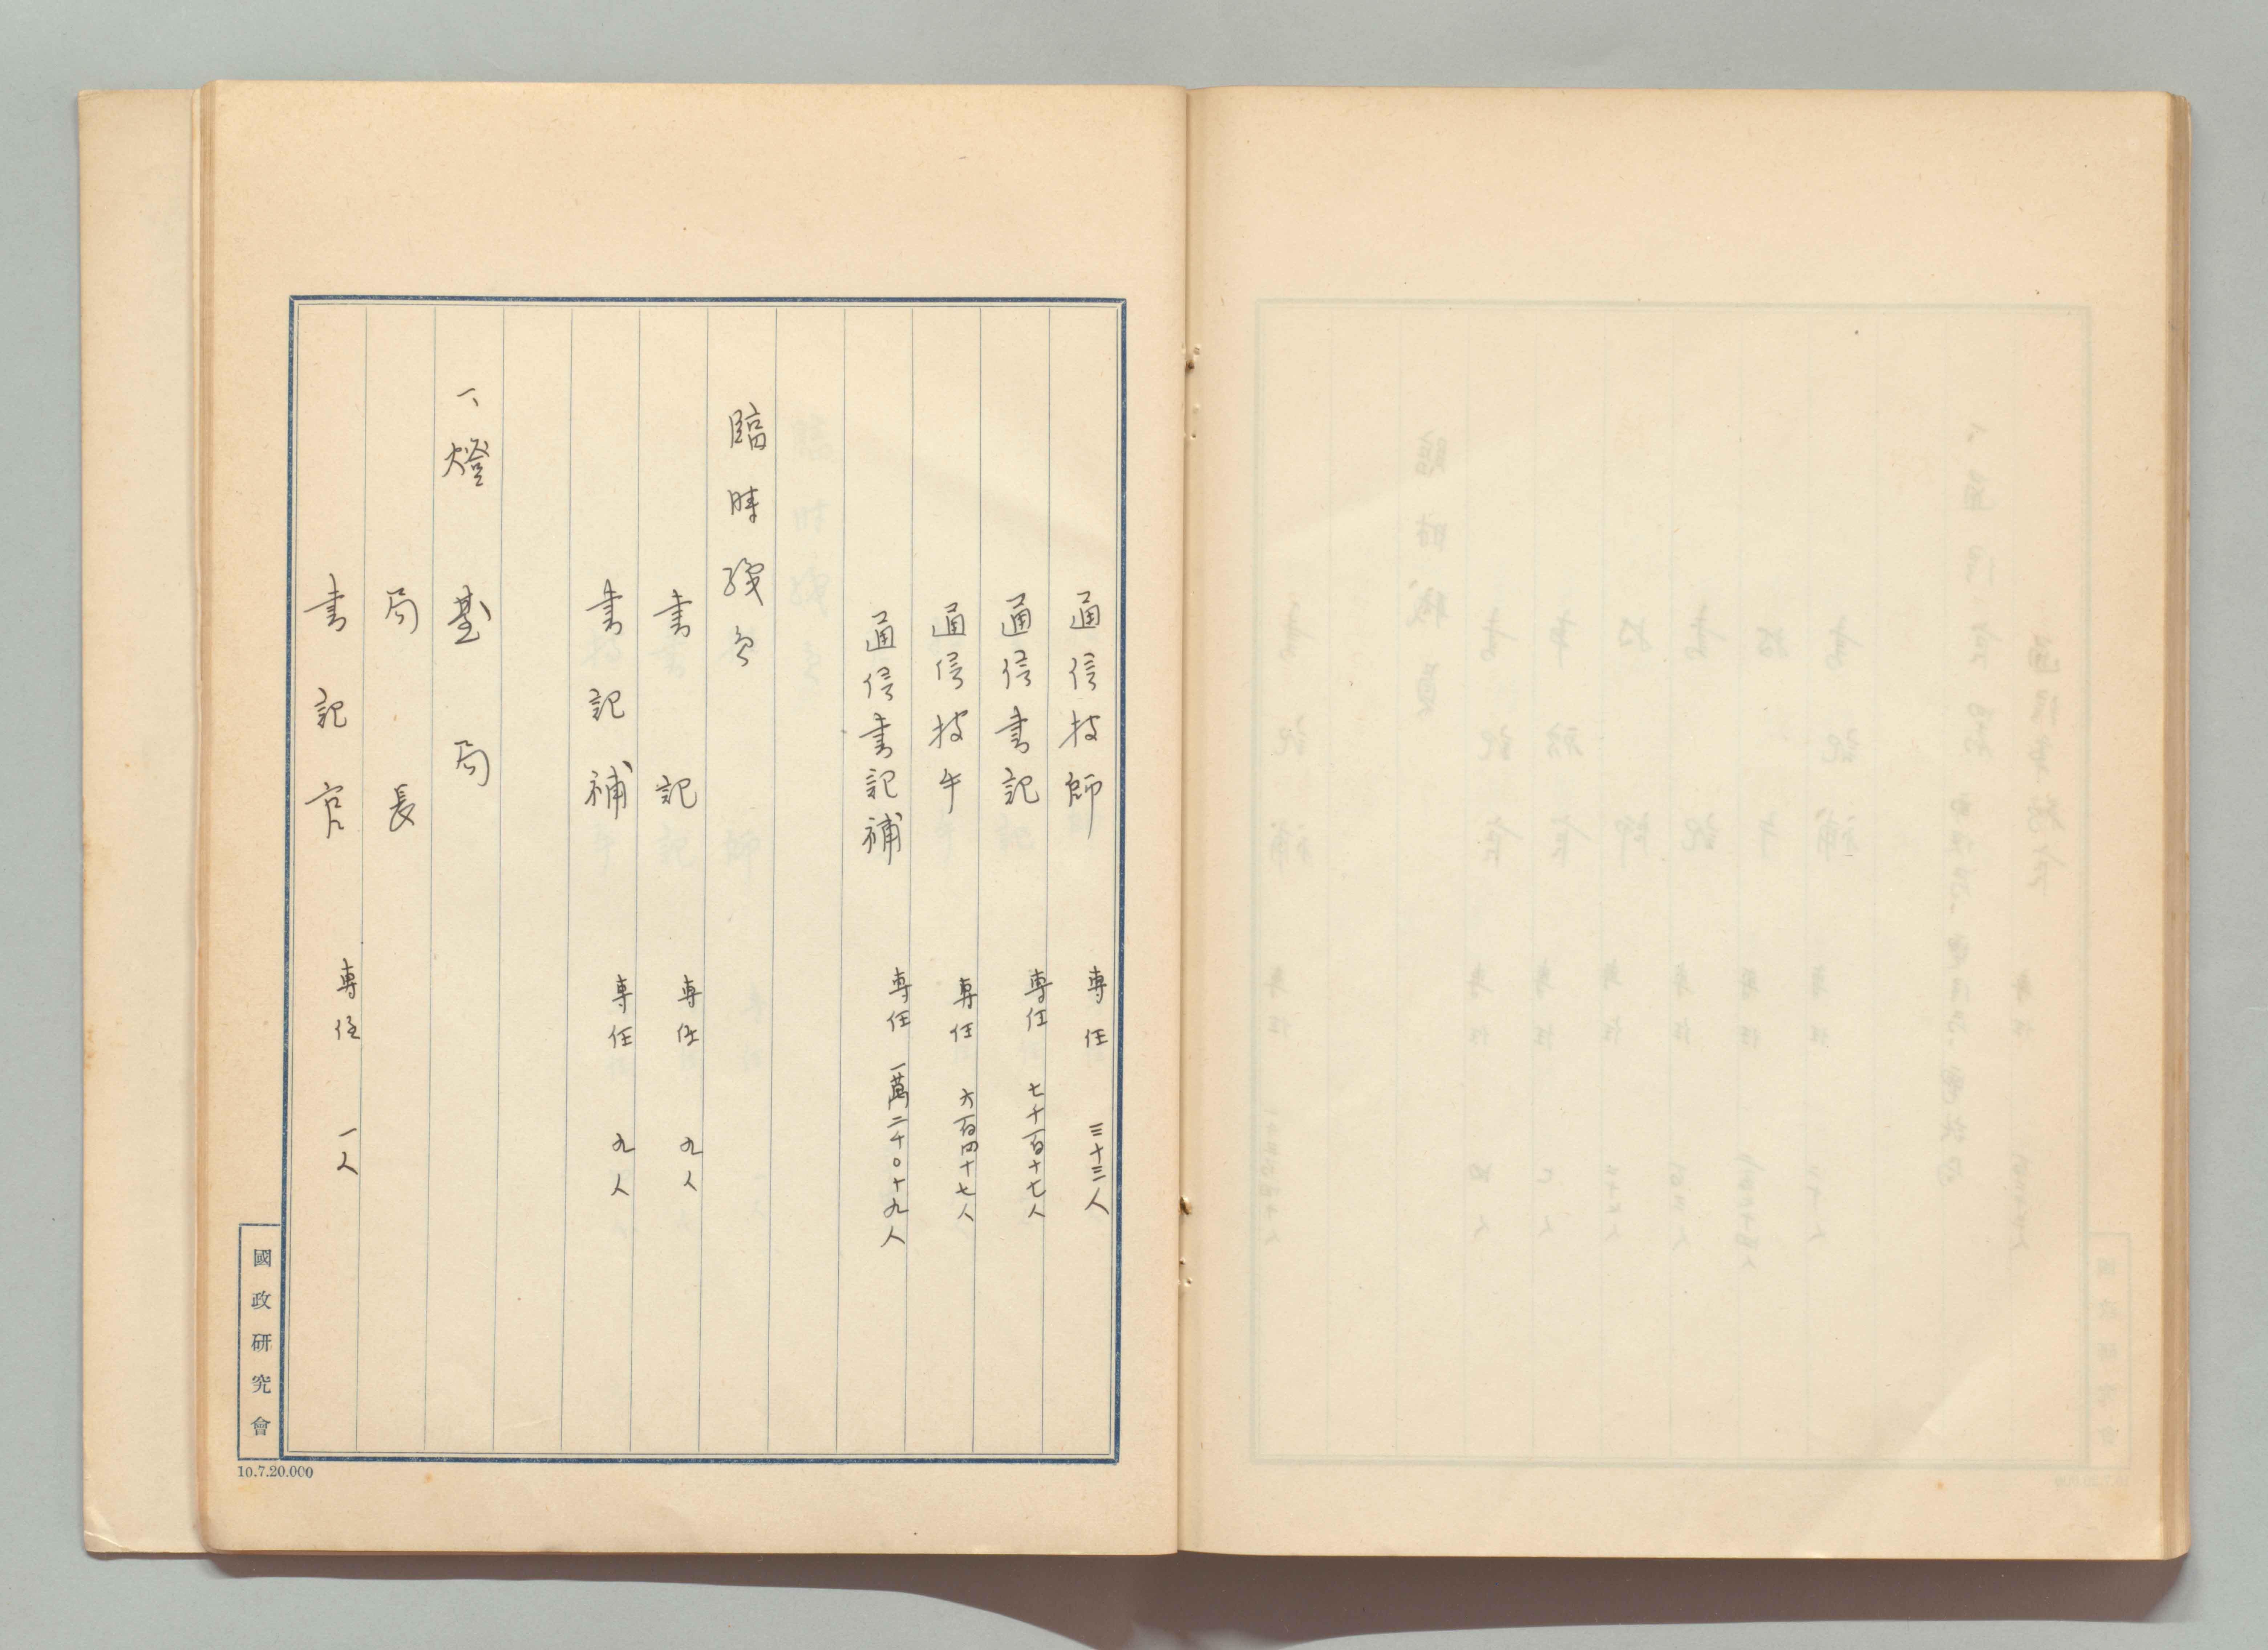 通信技師 専任 三十三人
通信書記 専任 七千百十七人
通信技手 専任 六百四十七人
通信書記補 専任 一萬二千〇十九人
臨時職員
書記 専任 九人
書記補 専任 九人
一、燈臺局
局長
書記官 専任 一人
國政研究會
10.7.20.000